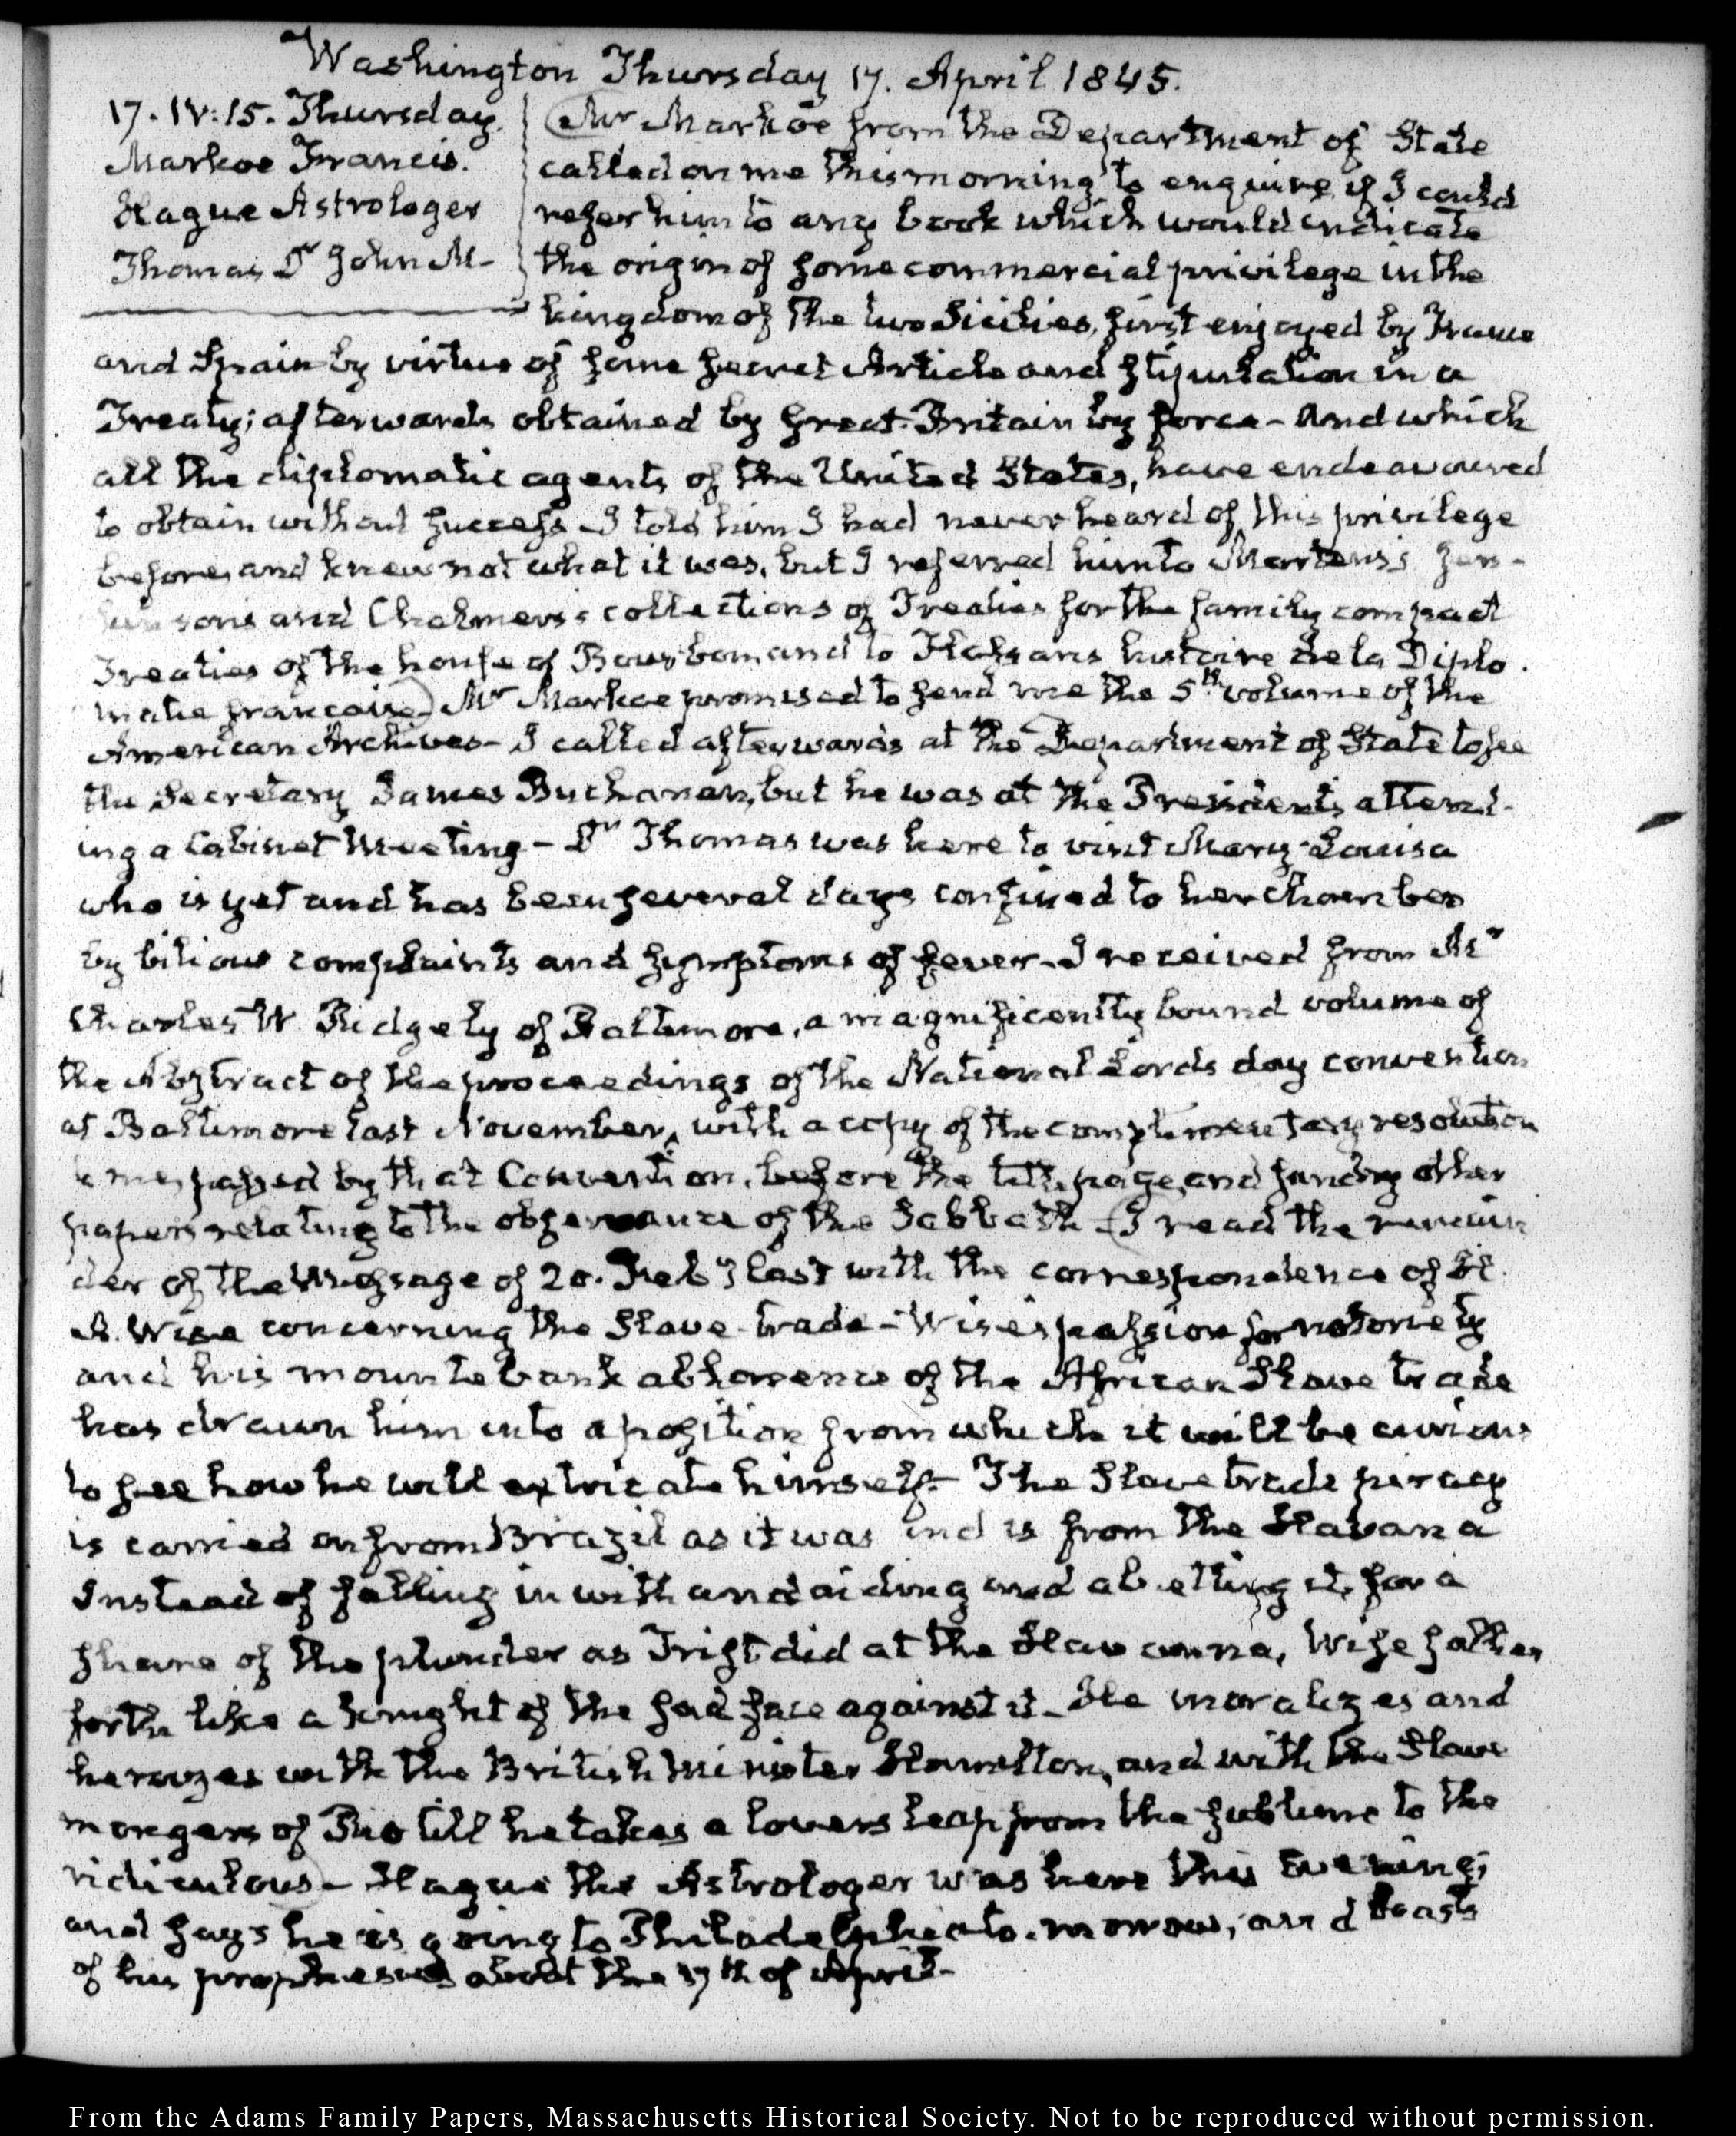 Washington Thursday 17. April 1845.
17. IV: 15. Thursday.
Markoe Francis.
Hague Astrologer
Thomas Dr John M-
Mr Markoe from the Department of State
called on me this morning to enquire if I could
refer him to any book which would indicate
the origin of some commercial privilege in the
kingdom of the two Sicilies, first enjoyed by France
and Spain by virtue of some secret Article and stipulation in a
Treaty; afterwards obtained by Great-Britain by force - And which
all the diplomatic agents of the United States, have endeavoured
to obtain without success - I told him I had never heard of this privilege
before, and knew not what it was, but I referred him to Martens's Jen-
kinsons and Chalmers's collections of Treaties for the family compact
Treaties of the house of Bourbon and to Flassans histoire de la Diplo-
matie francaise - Mr Markoe promised to send me the 5th volume of the
American Archives - I called afterwards at the Department of State to see
the Secretary James Buchanan, but he was at the Presidents attend-
ing a Cabinet Meeting - Dr Thomas was here to visit Mary-Louisa
who is yet and has been several days confined to her chamber
by bilious complaints and symptoms of fever - I received from Mr
Charles W. Ridgely of Baltimore, a magnificently bound volume of
the Abstract of the proceedings of the National Lords day convention
at Baltimore last November, with a copy of the complimentary resolution
to me, passed by that Convention, before the title page, and sundry other
papers relating to the observance of the Sabbath - I read the remain-
der of the Message of 20. Feby last with the correspondence of H.
A. Wise concerning the Slave-trade - Wise's passion for notoriety
and his mountebank abhorrence of the African Slave trade
has drawn him into a position from which it will be curious
to see how he will extricate himself - The Slave trade piracy
is carried on from Brazil as it was and is from the Havana
Instead of falling in with and aiding and abetting it, for a
share of the plunder as Trist did at the Havanna, Wise sallies
forth like a knight of the sad face against it - He moralizes and
heroizes with the British Minister Hamilton, and with the Slave
mongers of Rio till he takes a lovers leap from the sublime to the
ridiculous - Hague the Astrologer was here this Evening;
and says he is going to Philadelphia to-morrow, and boasts
of his prophesies about the 17th of April -
From the Adams Family Papers, Massachusetts Historical Society. Not to be reproduced without permission.